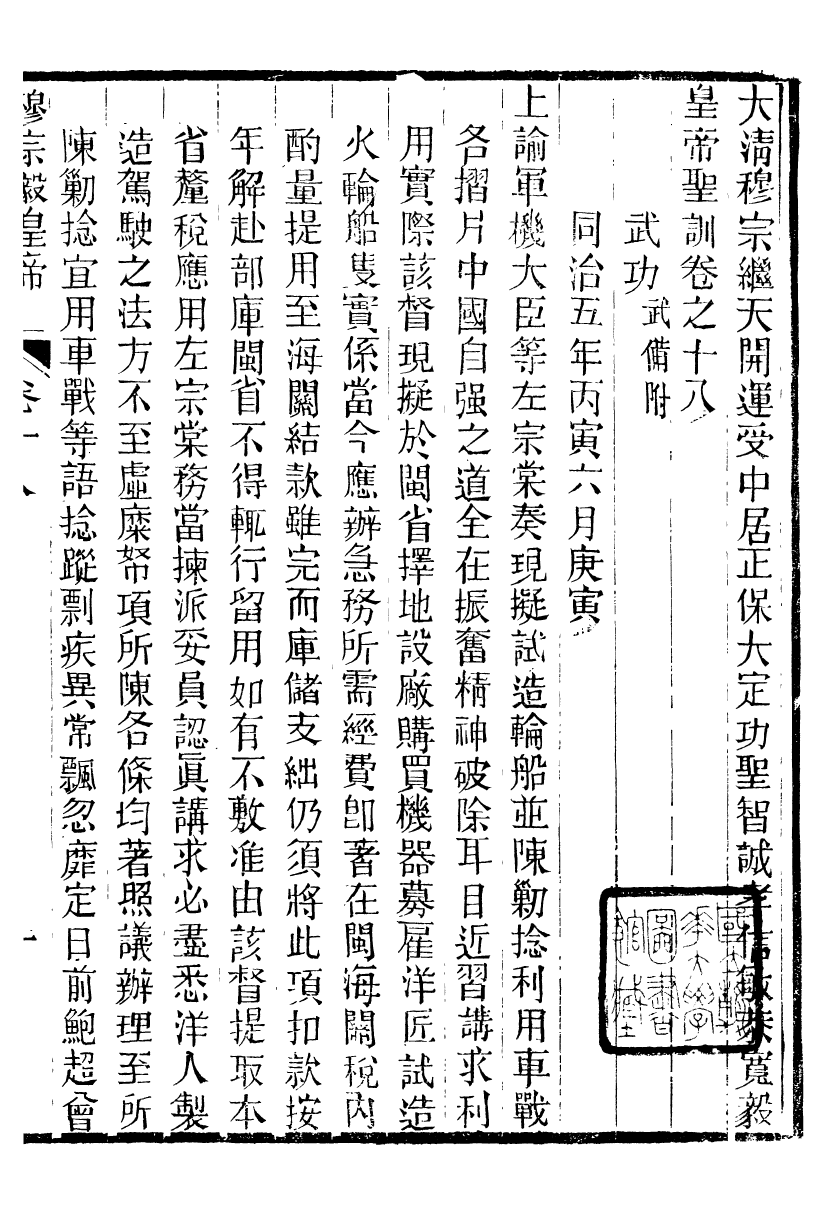 大清穆宗繼天開運受中居正保大定功聖智誠孝信敏恭寬毅
皇帝聖訓卷之十八
武功武備附
同治五年丙寅六月庚寅
上諭軍機大臣等左宗棠奏現擬試造輪船並陳勦捻利用車戰
各摺片中國自强之道全在振奮精神破除耳目近習講求利
用實際該督現擬於閩省擇地設廠購買機器募雇洋匠試造
火輪船隻實係當今應辦急務所需經費卽著在閩海關稅內
酌量提用至海關結款雖完而庫儲支絀仍須將此項扣款按
年解赴部庫閩省不得輒行留用如有不敷准由該督提取本
省釐稅應用左宗棠務當揀派妥員認眞講求必盡悉洋人製
造駕駛之法方不至虛糜帑項所陳各條均著照議辦理至所
陳勦捻宜用車戰等語捻蹤剽疾異常飄忽靡定日前鮑超曾
穆宗毅皇帝
卷十八
一
圖書